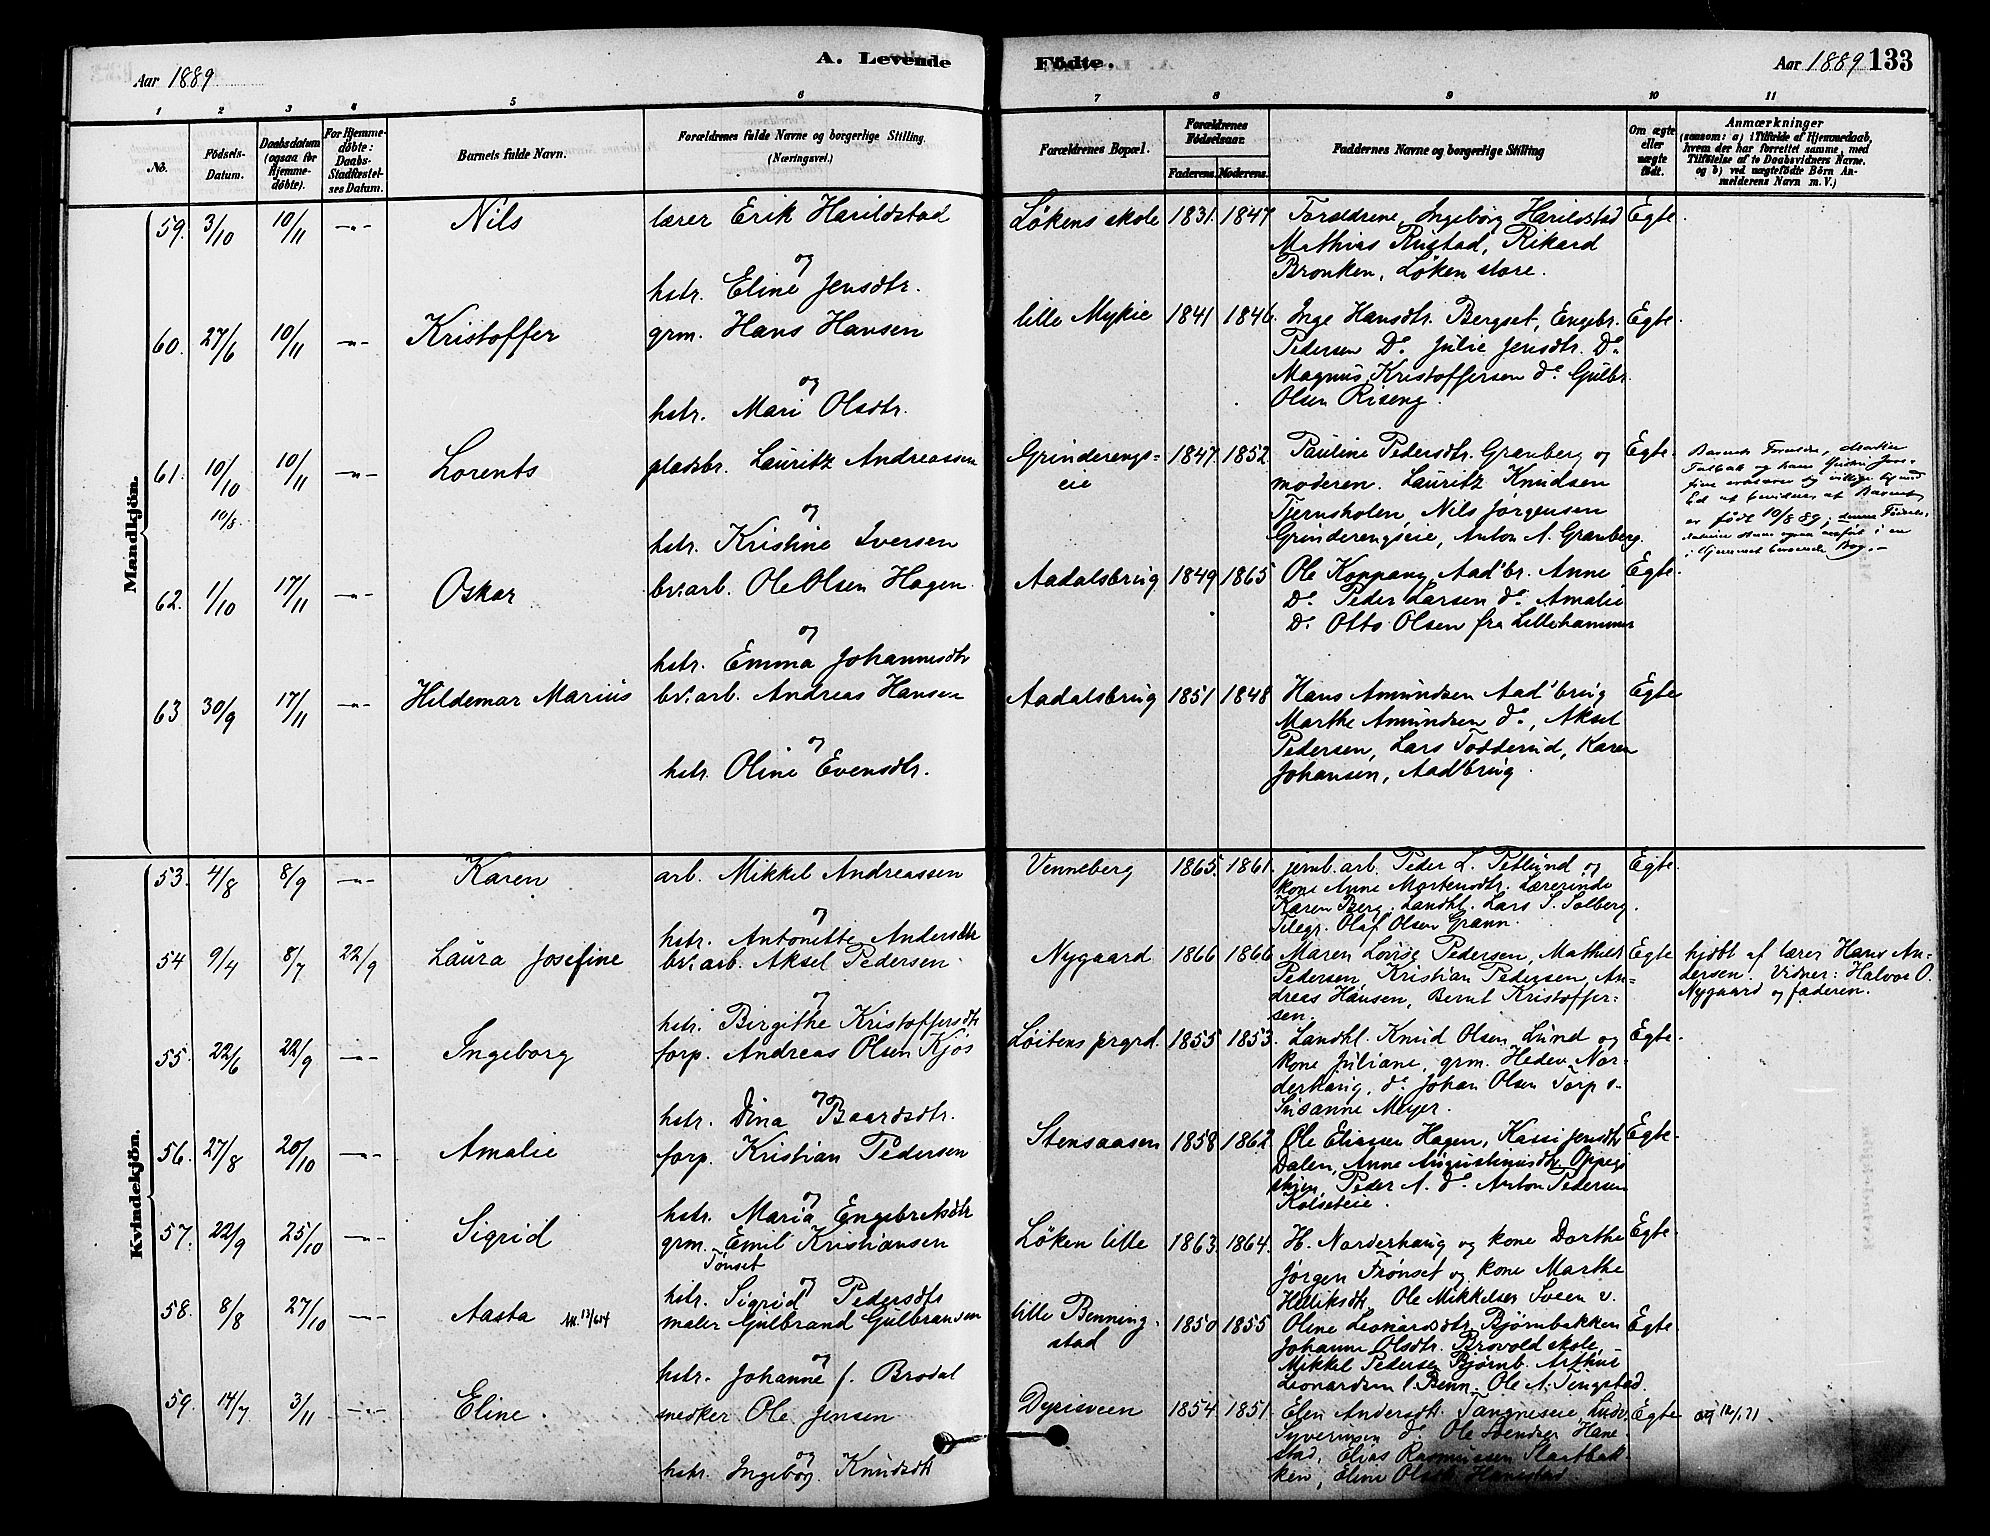 Aar 1889
A. Levende
Fødte.
Aar 1889 133
1 2 3 4 5 6 7 8 9 10 11
No.
Fødsels-
Datum.
Daabsdatum
(ogsaa for
Hjemme-
døbte).
For Hjemme-
døbte:
Daabs-
Stadfæstel-
ses Datum.
Barnets fulde Navn.
Forældrenes fulde Navne og borgerlige Stilling.
(Næringsvei.)
Forældrenes Bopæl.
Forældrenes
Fødselsaar.
Faderens. Moderens.
Faddernes Navne og borgerlige Stilling
Om ægte
eller
uægte
født.
Anmærkninger
(saasom: a) i Tilfælde af Hjemmedaab,
hvem der har forrettet samme, med
Tilføielse af to Daabsvidners Navne.
og b) ved uægtefødte Børn An-
melderens Navn m. V.)
Mandkjön.
59. 3/10 10/11 -"- Nils lærer Erik Harildstad
og
hstr. Eline Jensdtr.
Løkens skole 1831. 1847. Forældrene, Ingeborg Harildstad Egte.
Mathias Rustad, Rikard
Bronken, Løken store.
60. 27/6 10/11 -"- Kristoffer grm. Hans Hansen
og
hstr. Mari Olsdtr.
lille Mykie 1841 1846. Inge Hansdtr. Bergset, Engebr. Egte.
Pedersen Do. Julie Jensdtr. Do.
Magnus Kristoffersen do. Gulbr.
Olsen Riseng.
61. 10/10 10/11 -"- Lorents pladsbr. Lauritz Andreassen
10/8.
og
hstr. Kristine Iversen
Grinderengs-
eie
1847. 1852. Pauline Pedersdtr. Granberg og Egte.
moderen. Lauritz Knudsen
Tjernsholen, Nils Jørgensen
Grinderengseie, Anton A. Granberg.
Ed at bevidne at Barnet
er født 10/8 89; denne Fødsels-
62. 1/10 17/11 -"- Oskar brv.arb. Ole Olsen Hagen.
og
hstr. Emma Johannesdtr
Aadalsbrug 1849 1865. Ole Koppang Aad'br. Anne Egte.
Do. Peder Larsen do. Amalie
Do. Otto Olsen fra Lillehammer
63 30/9 17/11 -"- Hildemar Marius brv.arb. Andreas Hansen
og
hstr. Oline Evensdtr.
Aadalsbrug 1851 1848. Hans Amundsen Aad'brug Egte
Marthe Amundsen do., Aksel
Pedersen, Lars Todderud, Karen
Johansen, Aad'brug.
Kvindekjön.
53. 4/8 8/9 -"- Karen arb. Mikkel Andreassen
og
hstr. Antonette Andersdtr
Venneberg 1865. 1861. jernb.arb. Peder L. Petlund og Egte.
kone Anne Mortensdtr. Lærerinde
Karen Berg, Landhl. Lars S. Solberg.
Telegr. Olaf Olsen Grann.
54 9/4 8/7 22/9 Laura Josefine brv.arb. Aksel Pedersen.
og
hstr. Birgithe Kristoffersdtr
Nygaard 1866 1866 Maren Lovise Pedersen, Mathias Egte
Pedersen, Kristian Pedersen, An-
dreas Hansen, Bernt Kristoffer-
sen.
hjdbt af lærer Hans An-
dersen. Vidner: Halvor O.
Nygaard og faderen.
55. 22/6 22/9 -"- Ingeborg forp. Andreas Olsen Kjos
og
hstr. Dina Baardsdtr.
Løitens prgrd. 1855 1853. Landhl. Knud Olsen Lund og Egte.
kone Juliane, grm. Hedev. Nor-
derhaug, do. Johan Olsen Torp s.
Susanne Meyer.
56. 27/8 20/10 -"- Amalie forp. Kristian Pedersen
og
hstr. Maria Engebretsdtr
Stensaasen 1858 1862 Ole Eliassen Hagen, Jensdtr Egte.
Dalen, Anne Augustinusdtr
Peder A. do. Anton Pedersen
Kolseteie.
57. 22/9 25/10 -"- Sigrid grm. Emil Kristiansen
Tønset
og
hstr. Sigrid Pedersdtr
Løken lille 1863. 1864. H. Norderhaug og kone Dorthe Egte.
Jørgen Frønset og kone Marthe
Ole Mikkelsen Sveen v.
58. 8/8 27/10 -"- Aasta maler Gulbrand Gulbransen
og
hstr. Johanne f. Brodal
lille Benning-
stad
1850 1855 Oline Leonardsdtr. Bjørnbakken Egte.
Johanne Olsdtr. Brovold skole,
Mikkel Pedersen Bjørnb. Arthur
Leonardsen l. Benn. Ole A. Tengstad.
59. 14/7 3/11 -"- Eline. snedker Ole Jensen
og
hstr. Ingeborg Knudsdtr
Dyrisveen 1854. 1851. Elen Andersdtr. Tangneseie, Ludv. Egte
Syverinsen do. Ole Hane-
stad, Elias Rasmussen Startbak-
ken, Eline Olsdtr Hanestad